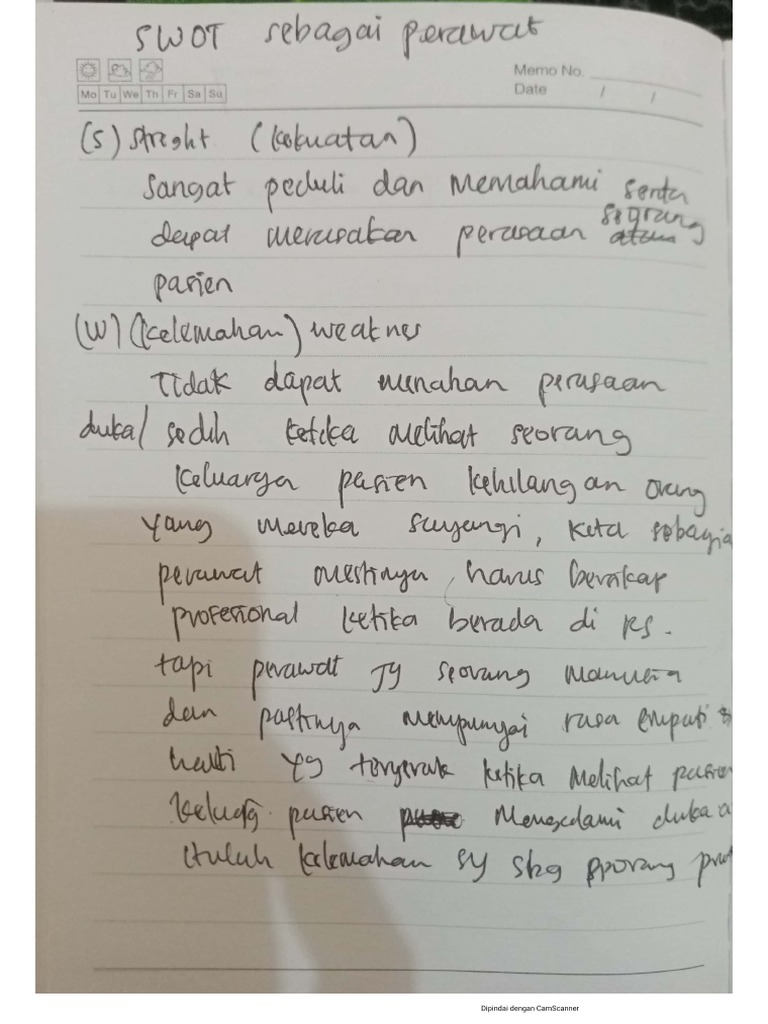 SWOT sebagai perawat
Memo No.
Mo Tu We Th Fr Sa Su
Date / /
(S) Streght (Kekuatan)
Sangat peduli dan Memahami serta
dapat merasakan perasaan seorang
pasien
(W) (Kelemahan) weatnes
Tidak dapat menahan perasaan
duka/ sedih ketika Melihat seorang
Keluarga pasien kehilangan orang
yang mereka sayangi, kita sebagia
perawat mestinya, harus bersikap
profesional ketika berada di RS.
tapi perawat jg seorang Manusia
dan pastinya mempunyai rasa empati
hati yg tergerak ketika Melihat pasien
pasien Mengalami duka
Itulah kelemahan sy sbg
Dipindai dengan CamScanner